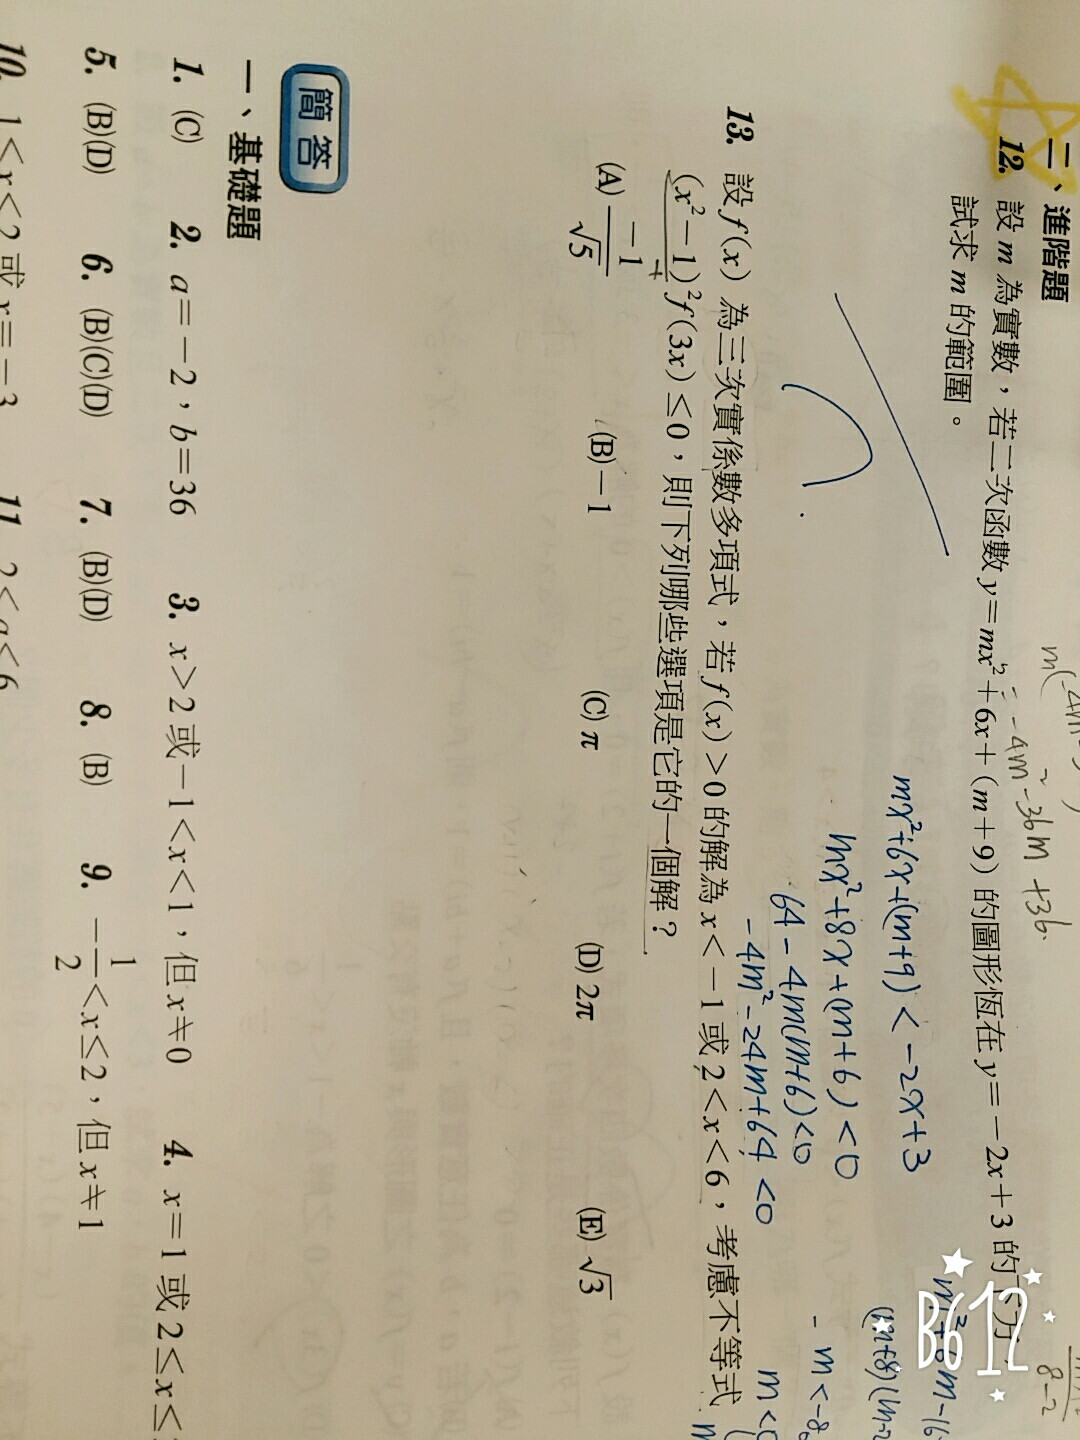 二、進階題
12. 設 m 為實數，若二次函數 y=mx²+6x+(m+9) 的圖形恆在 y=-2x+3 的下方，
試求 m 的範圍。
-4m²-36m+36.
mx²+6x+(m+9)<-2x+3
mx²+8x+(m+6)<0
64-4m(m+6)<0
-4m²-24m+64<0
(m+8)(m-2
m<-8
m<0
B612
13. 設 f(x) 為三次實係數多項式，若 f(x)>0 的解為 x<-1 或 2<x<6，考慮不等式
(x²-1)²f(3x)≤0，則下列哪些選項是它的一個解？
+
(A) -1/√5 (B) -1 (C) π (D) 2π (E) √3
簡答
一、基礎題
1. (C) 2. a=-2，b=36 3. x>2 或 -1<x<1，但 x≠0 4. x=1 或 2≤x≤
5. (B)(D) 6. (B)(C)(D) 7. (B)(D) 8. (B) 9. -1/2<x≤2，但 x≠1
10. 1<x<2 或 x=-3 11. 2<a<6